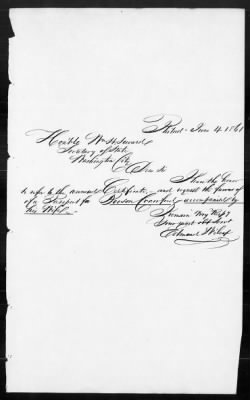 Philad. June 4, 1861
Honble Wm H. Seward
Secretary of State
Washington City
Dear Sir
I have the honor
to refer to the annexed Certificate, and request the favour of
of a Passport for Bowen Crawford, accompanied by
his Wife.
I remain Very Respy
Your most obt Servt
Edmund Wilcox